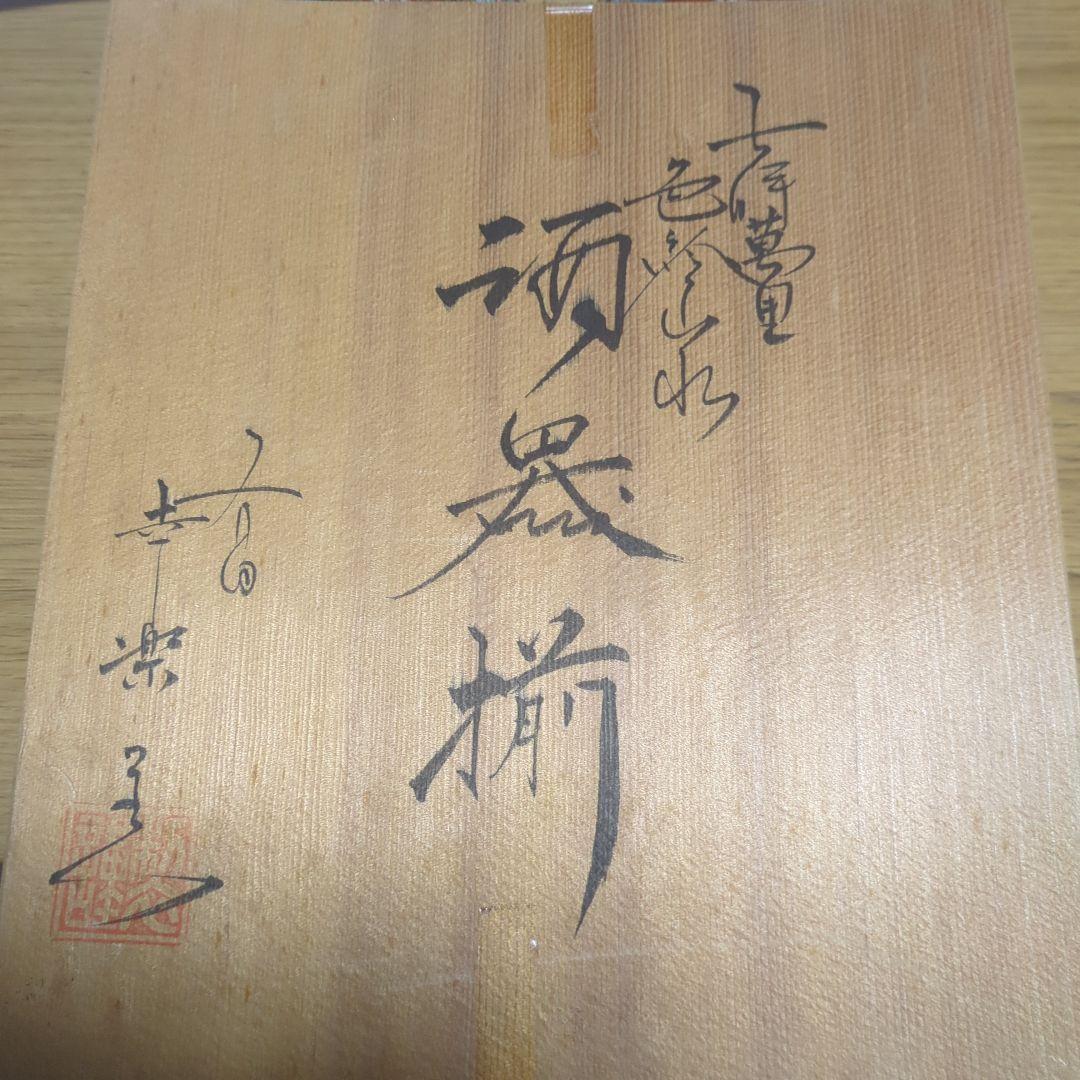 古伊萬里
色絵山水
酒器揃
有田
幸楽窯